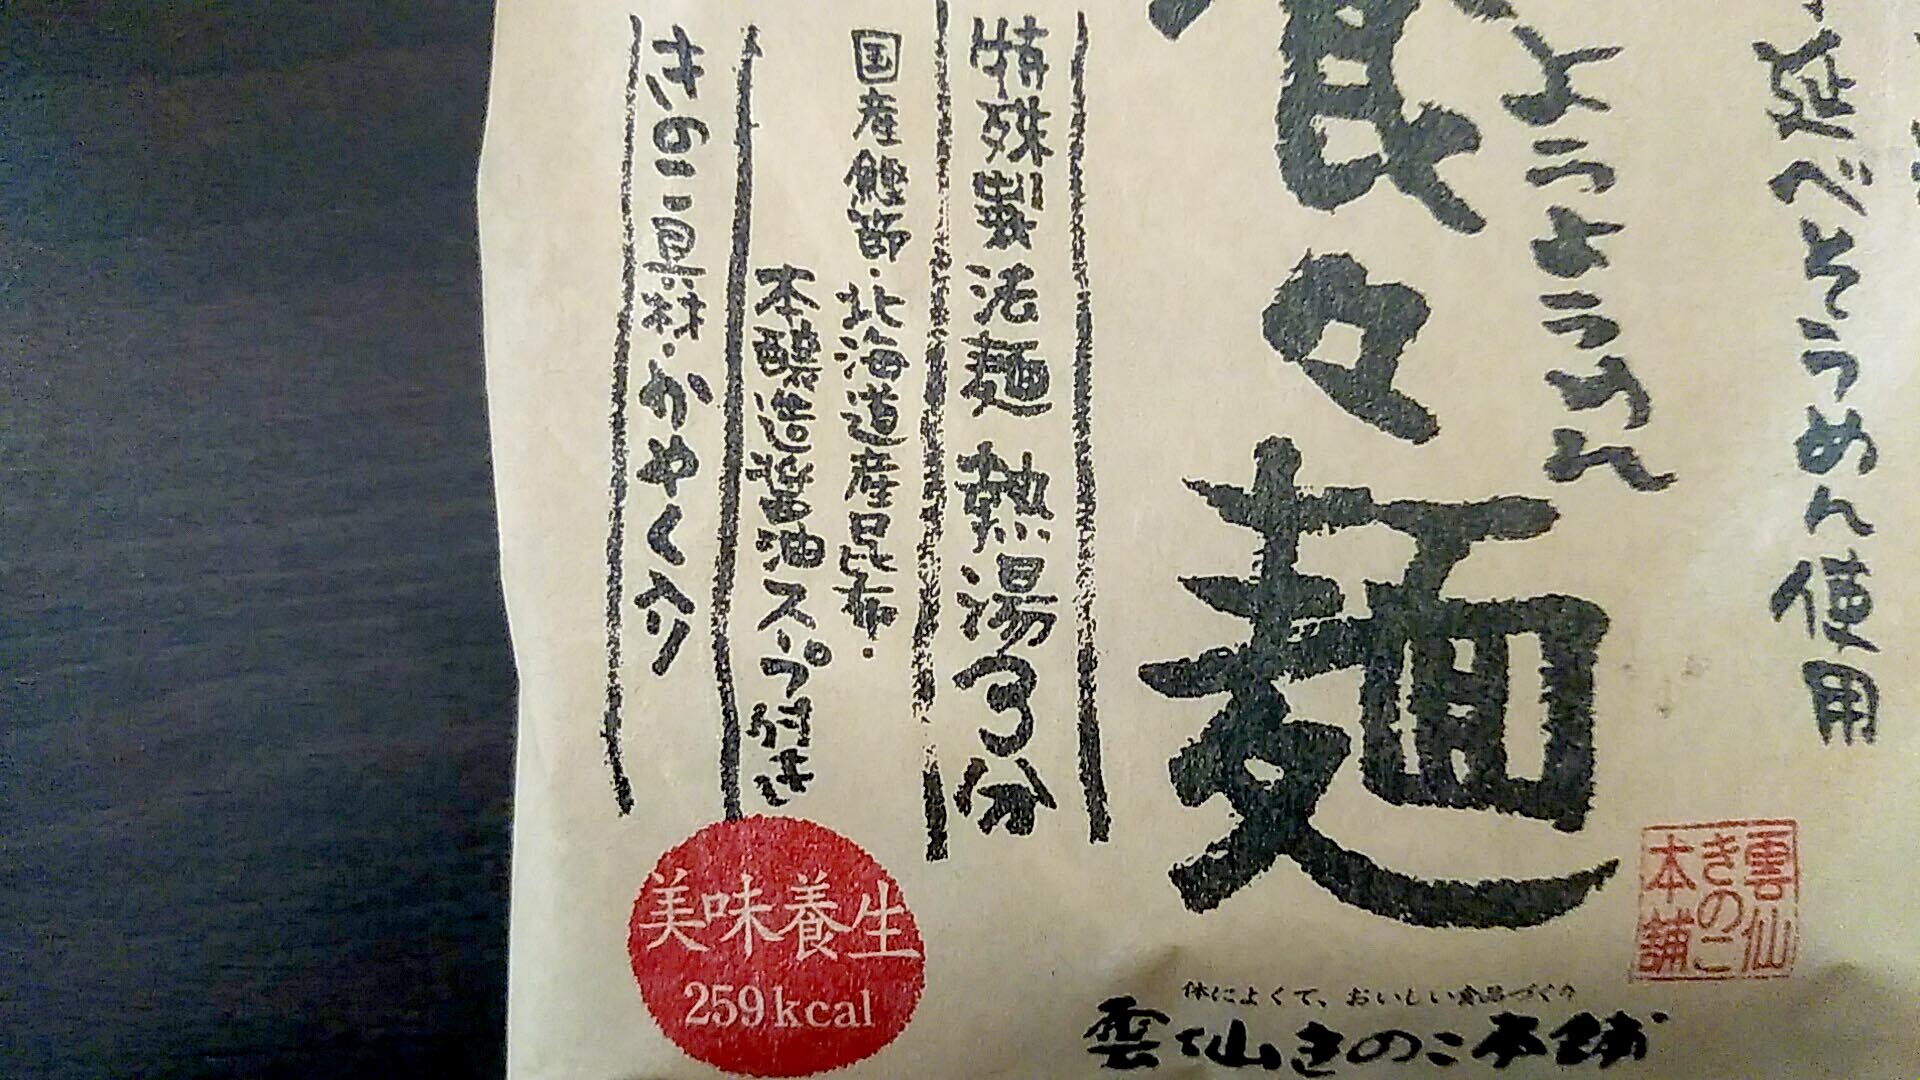 延べそうめん使用
ようようめん
々麺
特殊製法麺 熱湯3分
国産鰹節・北海道産昆布・
本醸造醤油スープ付き
きのこ具材・かやく入り
美味養生
259kcal
雲仙
きのこ
本舗
体によくて、おいしい食品づくり
雲仙きのこ本舗